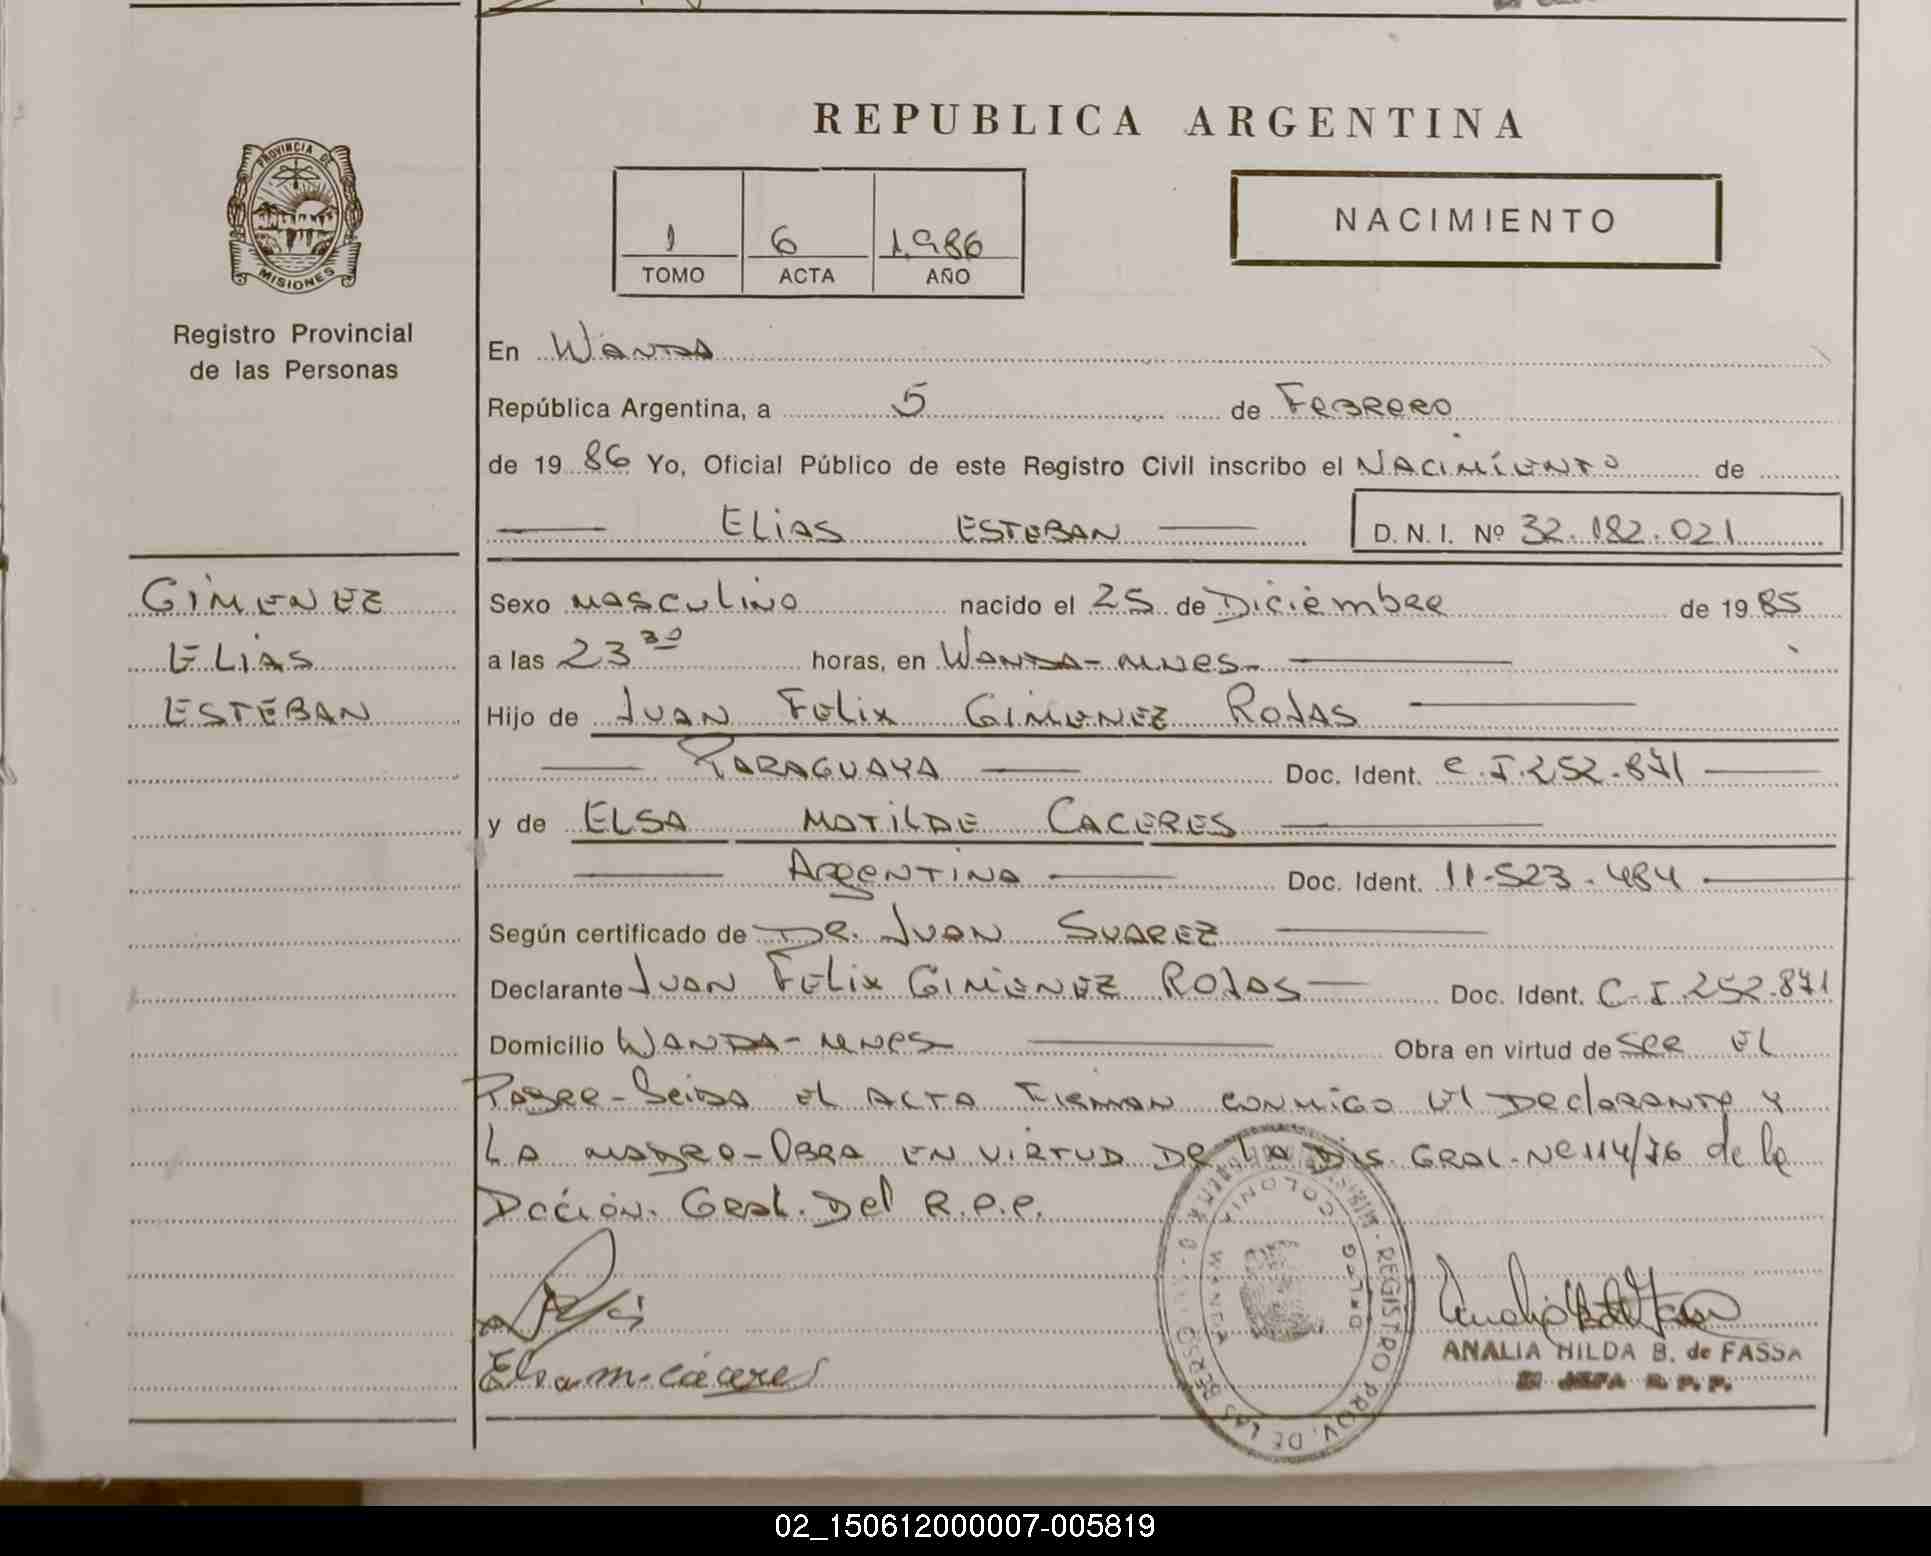 REPUBLICA ARGENTINA
PROVINCIA DE
MISIONES
Registro Provincial
de las Personas
1 6 1986
TOMO ACTA AÑO
NACIMIENTO
En Wanda
República Argentina, a 5 de Febrero
de 1986 Yo, Oficial Público de este Registro Civil inscribo el Nacimiento de
ELIAS ESTEBAN D. N. I. Nº 32.182.021
GIMENEZ
ELIAS
ESTEBAN
Sexo masculino nacido el 25 de Diciembre de 1985
a las 23 30 horas, en Wanda - Mnes.
Hijo de Juan Felix GIMENEZ ROJAS
PARAGUAYA Doc. Ident. C.I.252.871
y de ELSA MATILDE CACERES
ARGENTINA Doc. Ident. 11.523.484
Según certificado de DR. JUAN SUAREZ
Declarante Juan Felix GIMENEZ ROJAS Doc. Ident. C.I.252.871
Domicilio WANDA - Mnes Obra en virtud de ser el
Padre - Leida el acta firman conmigo el declarante y
La madre - Obra en virtud de la Dis. Gral. Nº 114/76 de la
Dcción. Gral. Del R.P.P.
Elsa m. cáceres
REGISTRO PROV. DE LAS
COLONIA WANDA
ANALIA HILDA B. de FASSA
JEFA R. P. P.
02_150612000007-005819